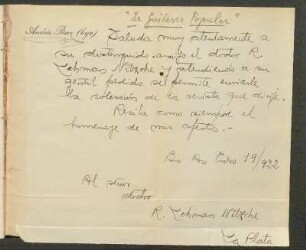 "La Guitarra Popular"
Andrés Pérez (hijo)
Saluda muy atentamente a
su distinguido amigo el doctor R.
Lehmas Nitzche y atendiendo a su
gentil pedido se permite enviarle
la colección de la revista que dirije.
Reciba como siempre el
homenaje de mis afectos.-
Bs As Enero 19/922
Al señor
doctor
R. Lehmas Nitzche
La Plata